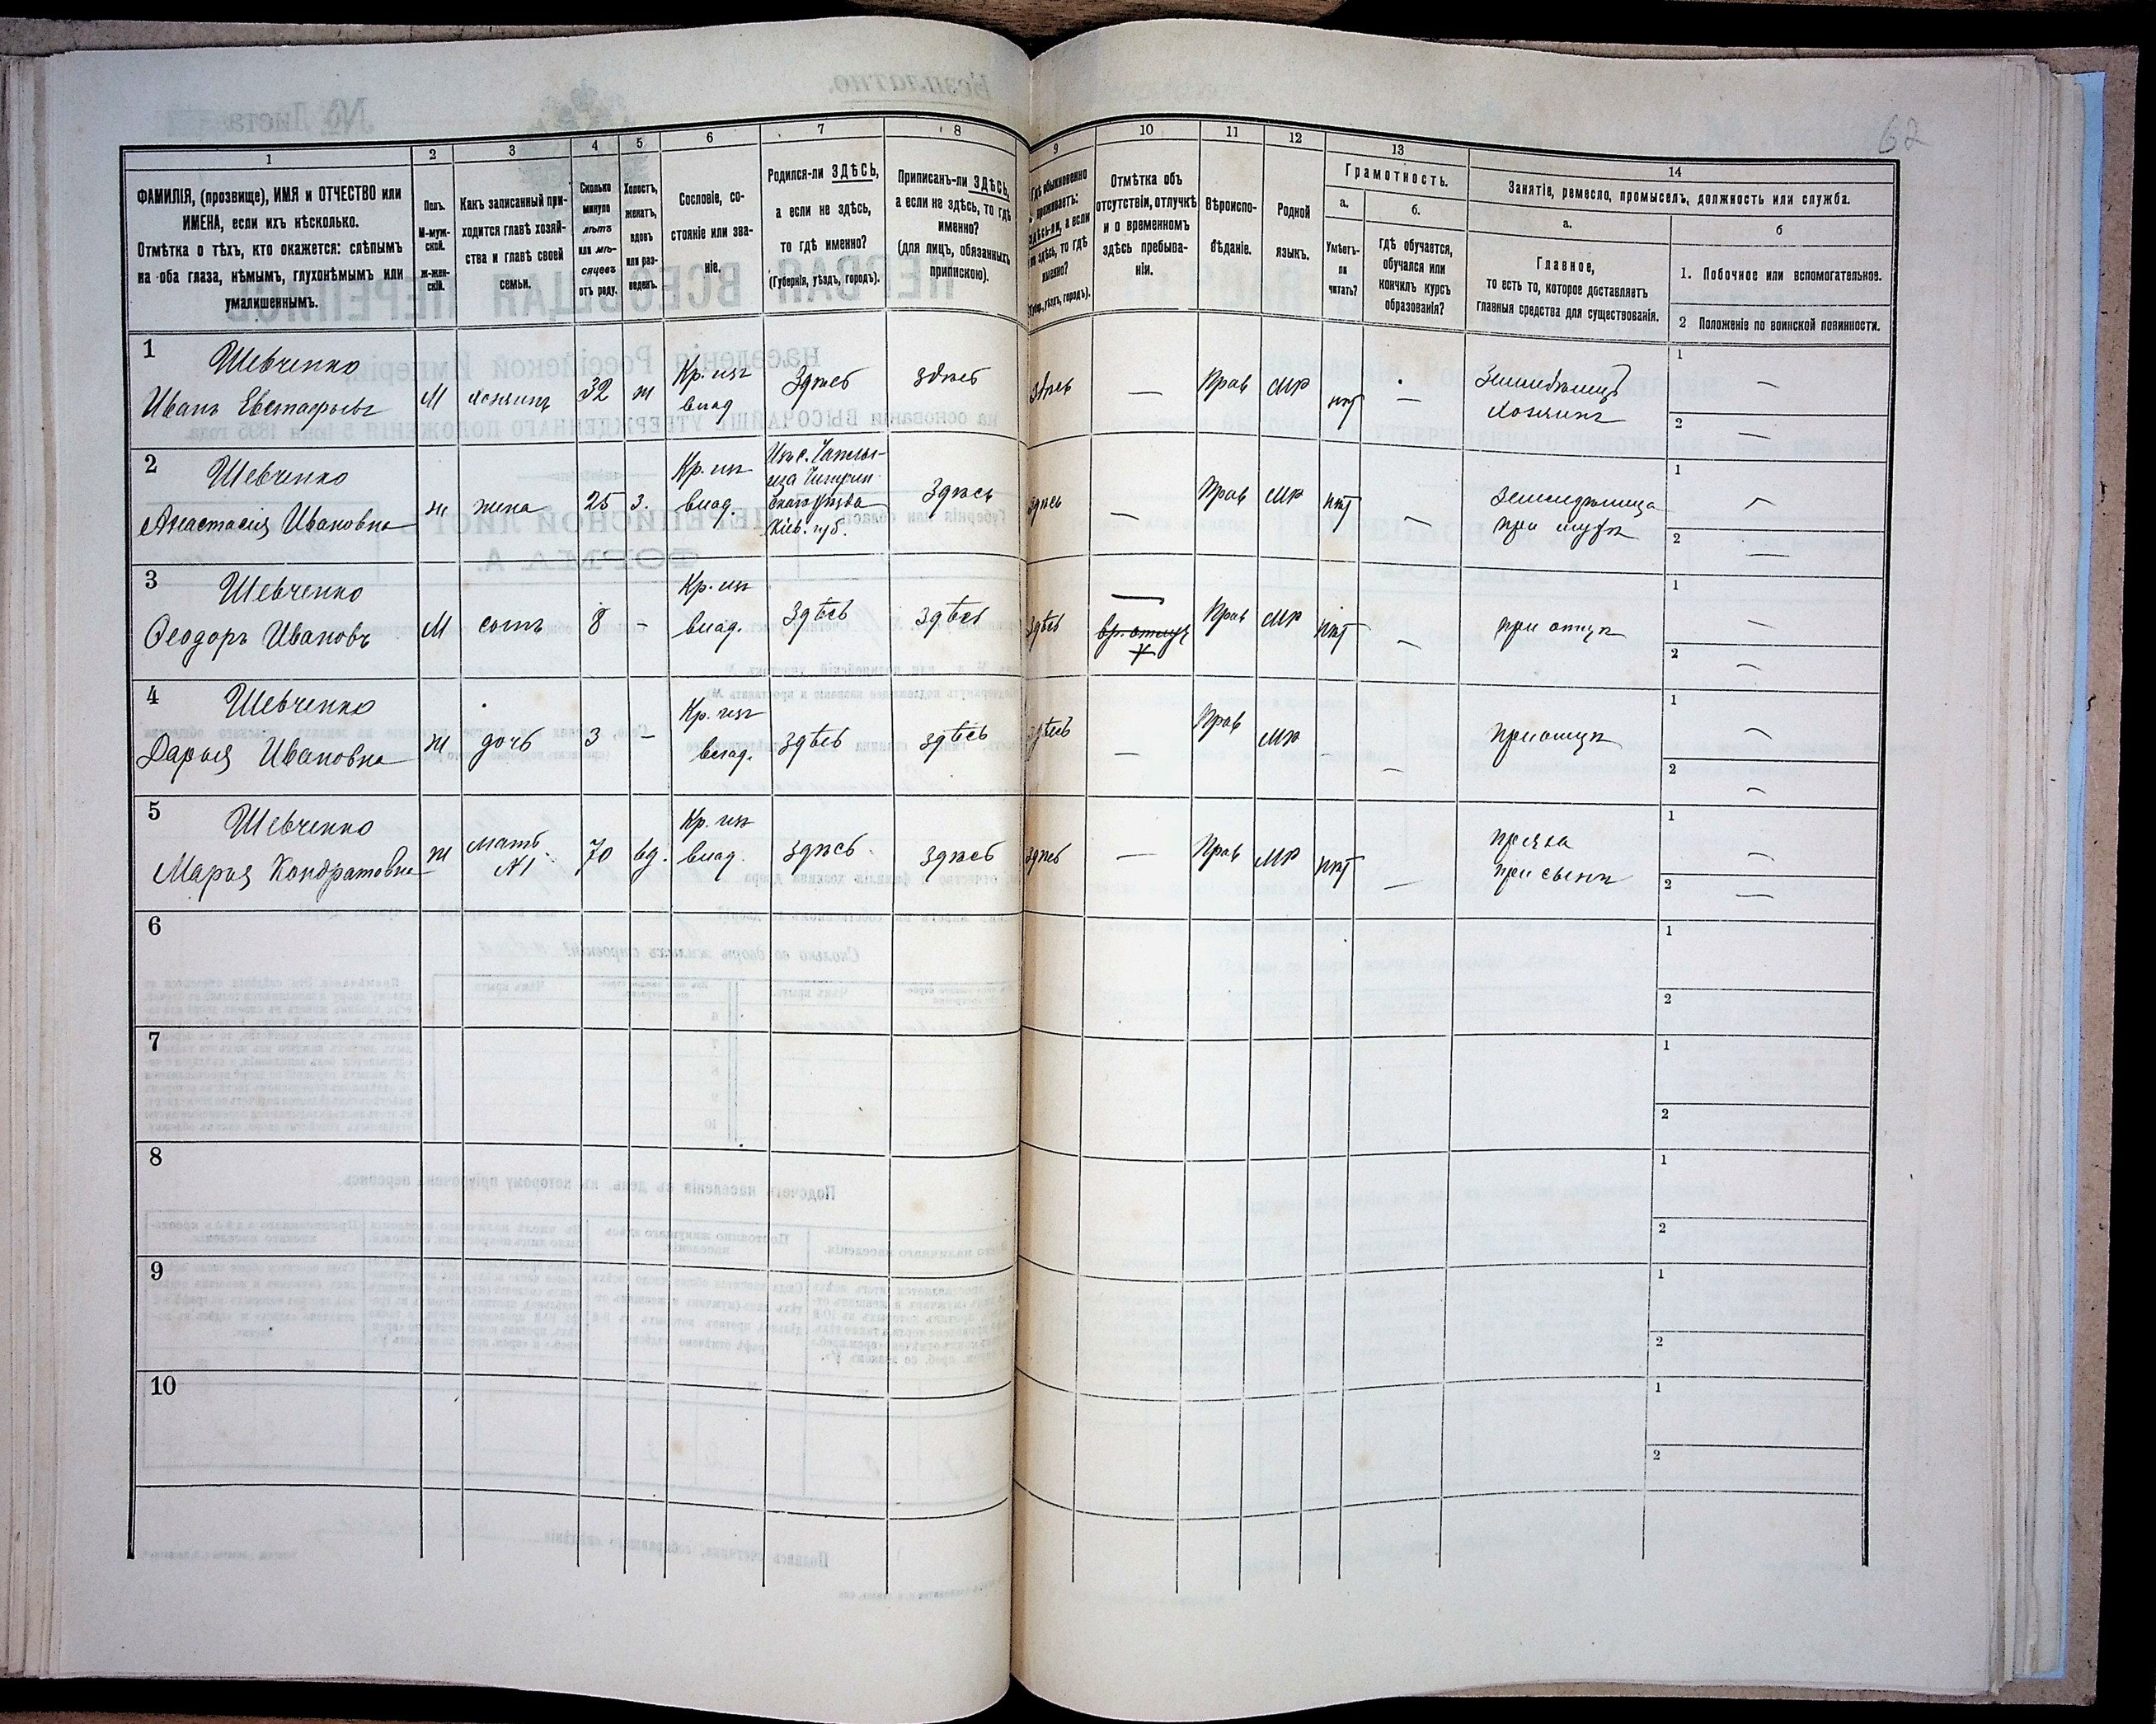 62
1
2
3
4
5
6
7
8
9
10
11
12
13
14
ФАМИЛІЯ, (прозвище), ИМЯ и ОТЧЕСТВО или
ИМЕНА, если ихъ нѣсколько.
Отмѣтка о тѣхъ, кто окажется: слѣпымъ
на оба глаза, нѣмымъ, глухонѣмымъ или
умалишеннымъ.
Полъ.
М-муж-
ской.
ж-жен-
скій.
Какъ записанный при-
ходится главѣ хозяй-
ства и главѣ своей
семьи.
Сколько
минуло
лѣтъ
или мѣ-
сяцевъ
отъ роду.
Холостъ,
женатъ,
вдовъ
или раз-
веденъ.
Сословіе, со-
стояніе или зва-
ніе.
Родился-ли ЗДѢСЬ,
а если не здѣсь,
то гдѣ именно?
(Губернія, уѣздъ, городъ).
Приписанъ-ли ЗДѢСЬ,
а если не здѣсь, то гдѣ
именно?
(для лицъ, обязанныхъ
припискою).
Гдѣ обыкновенно
проживаетъ:
здѣсь-ли, а если
не здѣсь, то гдѣ
именно?
уѣздъ, городъ).
Отмѣтка объ
отсутствіи, отлучкѣ
и о временномъ
здѣсь пребыва-
ніи.
Вѣроиспо-
вѣданіе.
Родной
языкъ.
Грамотность.
а.
б.
Умѣетъ-
ли
читать?
гдѣ обучается,
обучался или
кончилъ курсъ
образованія?
Занятіе, ремесло, промыселъ, должность или служба.
а.
б
Главное,
то есть то, которое доставляетъ
главныя средства для существованія.
1. Побочное или вспомогательное.
2 Положеніе по воинской повинности.
1 Шевченко
Иванъ Евстафьевъ М хозяинъ 32 ж Кр. изъ
влад Здѣсь здѣсь здѣсь — Прав мр нѣт — Земледѣлецъ
хозяинъ 1 —
2 —
2 Шевченко
Анастасія Ивановна ж жена 25 з. Кр. изъ
влад.
Кіев. губ. Здѣсь здѣсь — Прав мр нѣт — Земледѣлица
при мужѣ 1 —
2 —
3 Шевченко
Ѳеодоръ Ивановъ М сынъ 8 - Кр. изъ
влад. здѣсь здѣсь здѣсь — Прав мр нѣт — при отцѣ 1 —
2 —
4 Шевченко
Дарья Ивановна ж дочь 3 - Кр. изъ
влад. здѣсь здѣсь здѣсь — Прав мр — при отцѣ 1 —
2 —
5 Шевченко
Марья Кондратовна ж мать
№1 70 вд. Кр. изъ
влад. здѣсь здѣсь здѣсь — Прав мр нѣт — пряха
при сынѣ 1 —
2 —
6
1
2
7
1
2
8
1
2
9
1
2
10
1
2